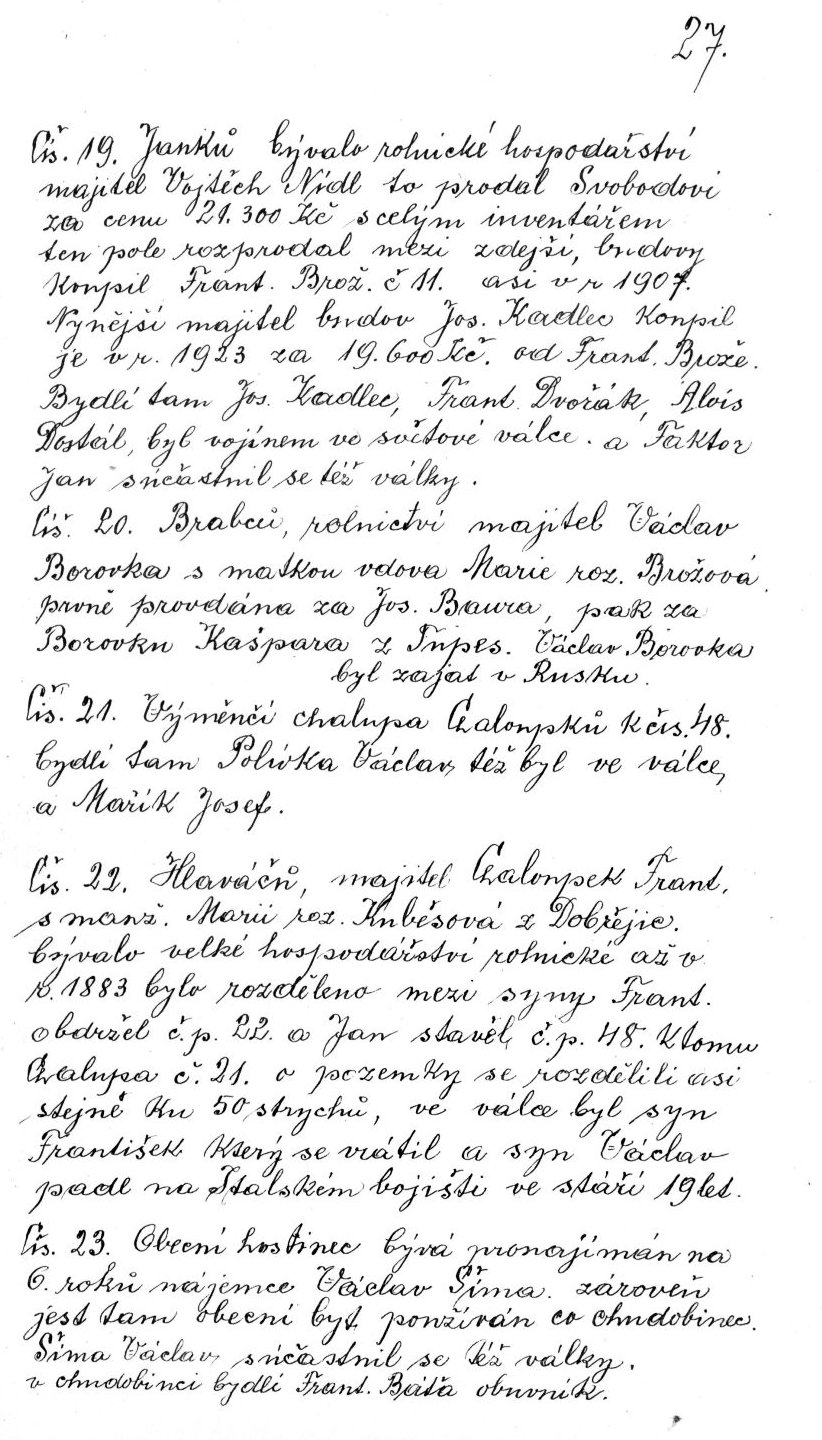 27.
Čís. 19. Janků bývalo rolnické hospodářství
majitel Vojtěch Nídl to prodal Svobodovi
za cenu 21.300 Kč s celým inventářem
ten pole rozprodal mezi zdejší, budovy
koupil Frant. Brož. č 11. asi v r 1907.
Nynější majitel budov Jos. Kadlec koupil
je v r. 1923 za 19.600 Kč. od Frant. Brože.
Bydlí tam Jos. Kadlec, Frant. Dvořák, Alois
Dostál, byl vojínem ve světové válce. a Faktor
Jan súčastnil se též války.
Čís. 20. Brabců, rolnictví majitel Václav
Borovka s matkou vdova Marie roz. Brožová
prvně provdána za Jos. Baura, pak za
Borovku Kašpara z Tupes. Václav Borovka
byl zajat v Rusku.
Čís. 21. Výměnčí chalupa Chaloupků k čís. 48.
bydlí tam Polívka Václav, též byl ve válce,
a Mařík Josef.
Čís. 22. Hlaváčů, majitel Chaloupek Frant.
s manž. Marii roz. Kubešová z Dobřejic.
bývalo velké hospodářství rolnické až v
r. 1883 bylo rozděleno mezi syny Frant.
obdržel č.p. 22. a Jan stavěl č.p. 48. k tomu
Chalupa č. 21. o pozemky se rozdělili asi
stejně ku 50 strychů, ve válce byl syn
František který se vrátil a syn Václav
padl na Italském bojišti ve stáří 19 let.
Čís. 23. Obecní hostinec bývá pronajímán na
6. roků nájemce Václav Šíma. zároveň
jest tam obecní byt používán co chudobinec.
Šíma Václav, súčastnil se též války.
v chudobinci bydlí Frant. Báťa obuvník.